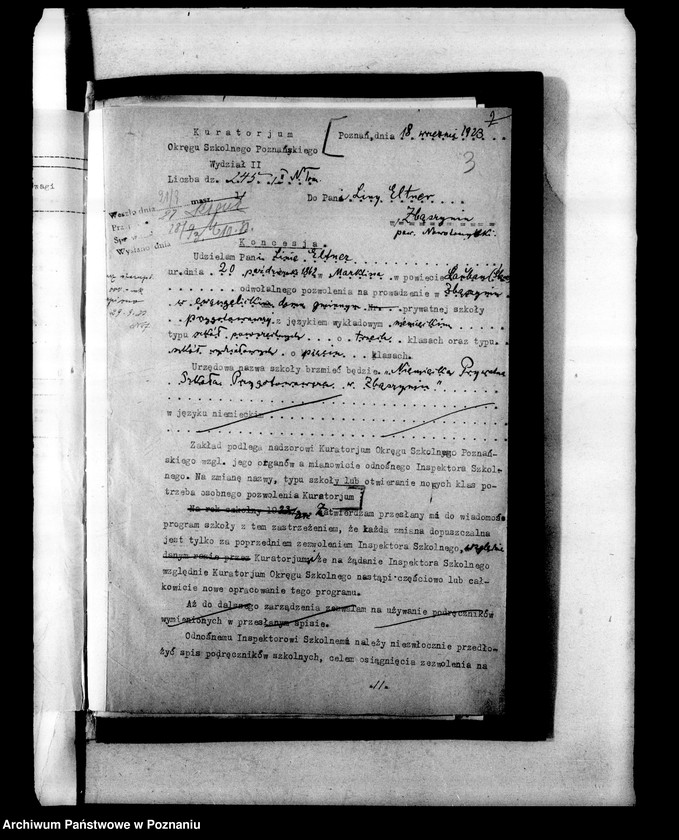 2
K u r a t o r j u m
Poznań, dnia 18 wrzesnia 1923
Okręgu Szkolnego Poznańskiego
3
Wydział II
Liczba dz. 245 II N
Do Pani Liny Eltner
Weszło dnia
Zbąszynia
pow. Nowotomyski.
Wysłano dnia
K o n c e s j a .
Udzielam Pani Linie Eltner
ur. dnia 20 października w Marklina w powiecie
odwołalnego pozwolenia na prowadzenie w Zbąszyniu
w ewangelickim domu gminnym prywatnej szkoły
przygotowawczej z językiem wykładowym niemieckim
typu szkół powszechnych o trzech klasach oraz typu
szkół wydziałowych o klasach.
Urzędowa nazwa szkoły brzmieć będzie „Niemiecka Prywatna
Szkoła Przygotowawcza w Zbąszyniu"
w języku niemieckim
Zakład podlega nadzorowi Kuratorjum Okręgu Szkolnego Poznań-
skiego wzgl. jego organów a mianowicie odnośnego Inspektora Szkol-
nego. Na zmianę nazwy, typu szkoły lub otwieranie nowych klas po-
trzeba osobnego pozwolenia Kuratorjum
Na rok szkolny 192 Zatwierdzam przesłany mi do wiadomości
program szkoły z tem zastrzeżeniem, że każda zmiana dopuszczalna
jest tylko za poprzedniem zezwoleniem Inspektora Szkolnego, względnie
danym razie przez Kuratorjum, że na żądanie Inspektora Szkolnego
względnie Kuratorjum Okręgu Szkolnego nastąpi częściowo lub cał-
kowicie nowe opracowanie tego programu.
Aż do dalszego zarządzenia zezwalam na używanie podręczników
wymienionych w przesłanym spisie.
Odnośnemu Inspektorowi Szkolnemu należy niezwłocznie przedło-
żyć spis podręczników szkolnych, celem osiągnięcia zezwolenia na
.//.
Archiwum Państwowe w Poznaniu